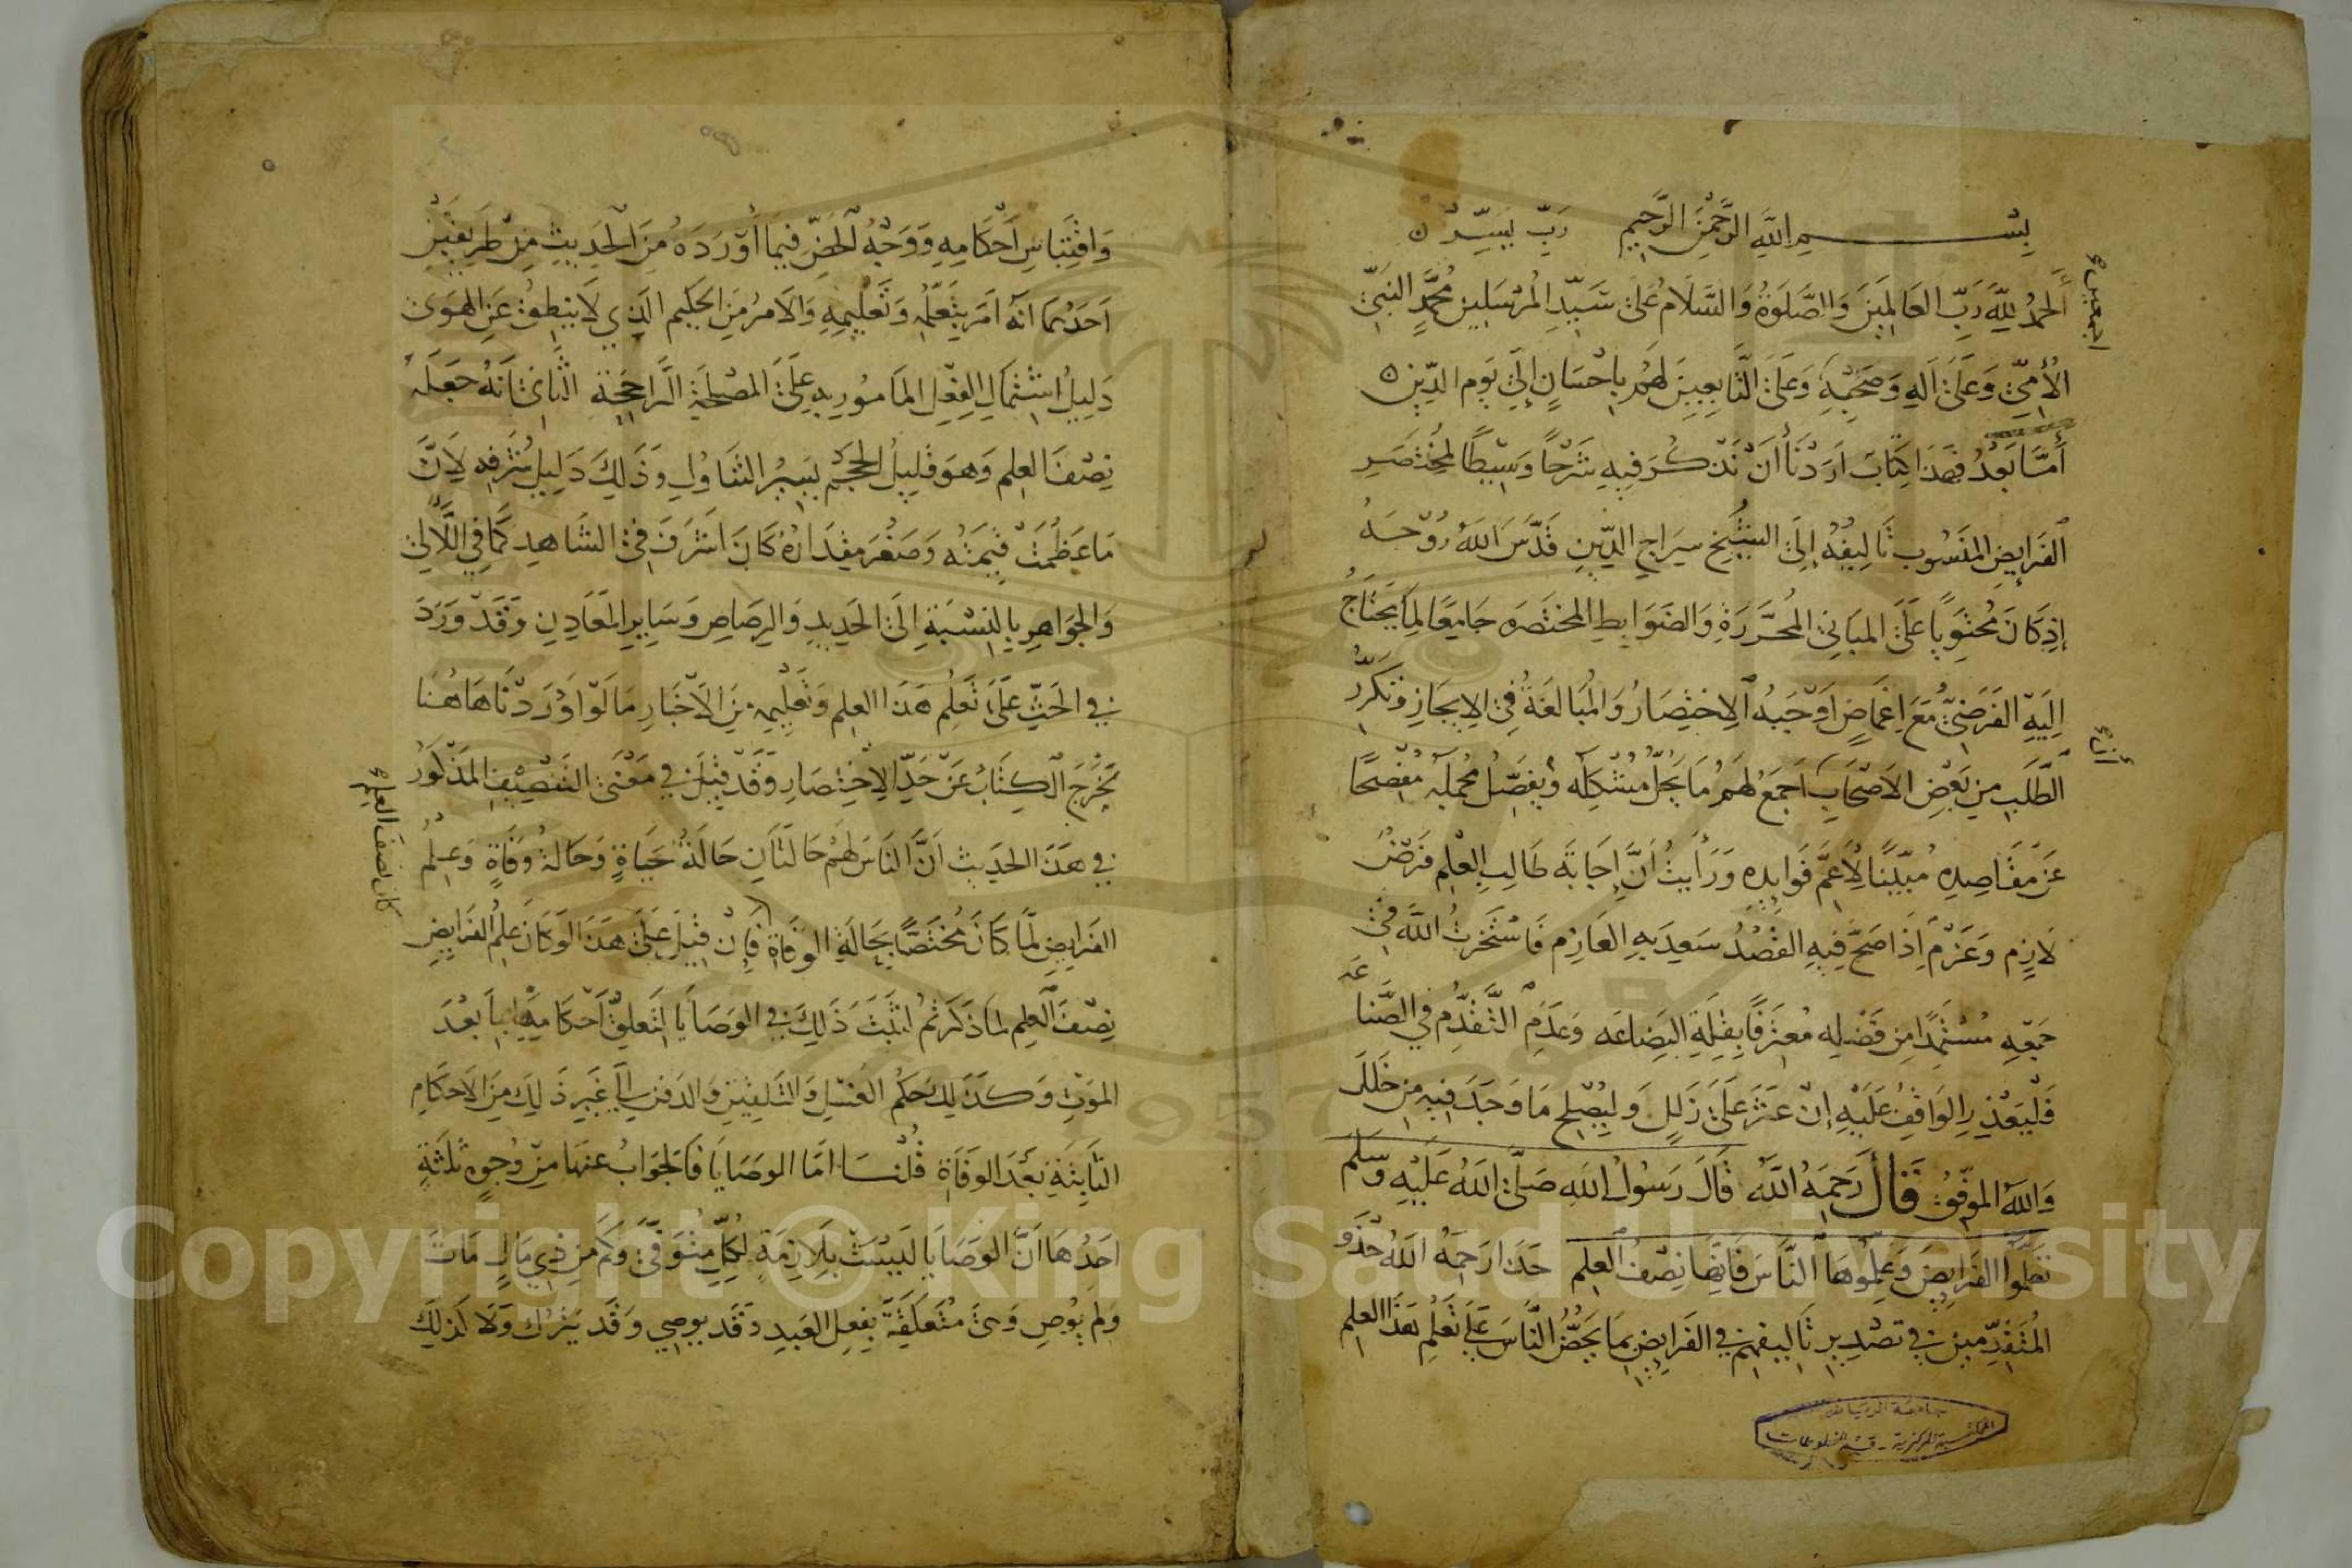 بِسْمِ اللَّهِ الرَّحْمَنِ الرَّحِيمِ رَبِّ يَسِّرْ
أَلحَمْدُ لِلَّهِ رَبِّ العَالَمِينَ وَالصَّلَوةُ وَالسَّلَامُ عَلَى سَيِّدِ المُرْسَلِينَ مُحَمَّدٍ النَّبِيِّ
اجمعين
الأُمِّيِّ وَعَلَى آلِهِ وَصَحْبِهِ وَعَلَى التَّابِعِينَ لَهُمْ بِإِحْسَانٍ إِلَى يَوْمِ الدِّينِ
أَمَّا بَعْدُ فَهَذَا كِتَابٌ أَرَدْنَا أَنْ نَذْكُرَ فِيهِ شَرْحًا وَسِيطًا لِمُخْتَصَرِ
الفَرَايِضِ المَنْسُوبِ تَالِيفُهُ إِلَى الشَّيْخِ سِرَاجِ الدِّينِ قَدَّسَ اللَّهُ رُوْحَهُ
إِذْ كَانَ مُحْتَوِيًا عَلَى المَبَانِي المُحَرَّرَةِ وَالضَّوَابِطِ المُخْتَصَرَه جَامِعًا لِمَا يَحْتَاجُ
إِلَيْهِ الفَرَضِيُّ مَعَ إِغْمَاضٍ أَوْجَبَهُ الاِخْتِصَارُ وَالمُبَالَغَةُ فِي الاِيجَازِ وَتَكَرَّرُ
الطَّلَبِ مِن بَعْضِ الأَصْحَابِ أَجْمَعُ لَهُمْ مَا يَحُلُّ مُشْكِلَهُ وَيُفَصِّلُ مُجْمَلَهُ مُفْصِحًا
أن
عَنْ مَقَاصِدِهِ مُبَيِّنًا لِأَعَمِّ فَوَايِدِهِ وَرَأَيْتُ أَنَّ إِجَابَةَ طَالِبِ العِلْمِ فَرْضٌ
لَازِم وَعَزْمٌ إِذَا صَحَّ فِيهِ القَصْدُ سَعِدَ بِهِ العَازِم فَاسْتَخَرْتُ اللَّهَ فِي
جَمْعِهِ مُسْتَمِدًّا مِن فَضْلِهِ مُعْتَرِفًا بِقِلَّةِ البِضَاعَه وَعَدَمِ التَّقَدُّمِ فِي الصِّنَاعَه
فَلْيَعْذِرِ الوَاقِفُ عَلَيْهِ إِنْ عَثَرَ عَلَى زَلَلٍ وَلْيُصْلِحْ مَا وَجَدَ فِيهِ مِن خَلَلٍ
وَاللَّهُ المُوَفِّقُ قَالَ رَحِمَهُ اللَّهُ قَالَ رَسُولُ اللَّهِ صَلَّى اللَّهُ عَلَيْهِ وَسَلَّمَ
تَعَلَّمُوا الفَرَايِضَ وَعَلِّمُوهَا النَّاسَ فَإِنَّهَا نِصْفُ العِلْمِ حَذَا رَحِمَهُ اللَّهُ حَذْوَ
المُتَقَدِّمِينَ فِي تَصْدِيرِ تَالِيفِهِمْ فِي الفَرَايِضِ بِمَا يَحُضُّ النَّاسَ عَلَى تَعَلُّمِ هَذَا العِلْمِ
جامعة الرياض
المكتبة المركزية - قسم المخطوطات
وَاقْتِبَاسِ أَحْكَامِهِ وَوَجْهُ الحَضِّ فِيمَا أَوْرَدَهُ مِنَ الحَدِيثِ مِنْ طَرِيقَيْنِ
أَحَدُهُمَا أَنَّهُ أَمَرَ بِتَعَلُّمِهِ وَتَعْلِيمِهِ وَالأَمْرُ مِنَ الحَكِيمِ الَّذِي لَا يَنْطِقُ عَنِ الهَوَى
دَلِيلُ اشْتِمَالِ الفِعْلِ المَامُورِ بِهِ عَلَى المَصْلَحَةِ الرَّاجِحَةِ الثَّانِي أَنَّهُ جَعَلَهُ
نِصْفَ العِلْمِ وَهُوَ قَلِيلُ الحَجْمِ يَسِيرُ التَّنَاوُلِ وَذَلِكَ دَلِيلُ شَرَفِهِ لِأَنَّ
مَا عَظُمَتْ قِيمَتُهُ وَصَغُرَ مِقْدَارُهُ كَانَ أَشْرَفَ فِي الشَّاهِدِ كَمَا فِي اللَّآلِي
وَالجَوَاهِرِ بِالنِّسْبَةِ إِلَى الحَدِيدِ وَالرَّصَاصِ وَسَايِرِ المَعَادِنِ وَقَدْ وَرَدَ
فِي الحَثِّ عَلَى تَعَلُّمِ هَذَا العِلْمِ وَتَعْلِيمِهِ مِنَ الأَخْبَارِ مَا لَوْ أَوْرَدْنَاهَا هَاهُنَا
يَخْرُجُ الكِتَابُ عَنْ حَدِّ الاِخْتِصَارِ وَقَدْ قِيلَ فِي مَعْنَى التَّنْصِيفِ المَذْكُورِ
فِي هَذَا الحَدِيثِ أَنَّ النَّاسَ لَهُمْ حَالَتَانِ حَالَةُ حَيَاةٍ وَحَالَةُ وَفَاةٍ وَعِلْمُ
الفَرَايِضِ لَمَّا كَانَ مُخْتَصًّا بِحَالَةِ الوَفَاةِ فَإِنْ قِيلَ عَلَى هَذَا لَوْ كَانَ عِلْمُ الفَرَايِضِ
كان نصف العلم
نِصْفَ العِلْمِ لِمَا ذَكَرْتُمْ لَثَبَتَ ذَلِكَ فِي الوَصَايَا لِتَعَلُّقِ أَحْكَامِهَا بِمَا بَعْدَ
المَوْتِ وَكَذَلِكَ حُكْمُ الغُسْلِ وَالتَّلْقِينِ وَالدَّفْنِ إِلَى غَيْرِ ذَلِكَ مِنَ الأَحْكَامِ
الثَّابِتَةِ بَعْدَ الوَفَاةِ قُلْنَا أَمَّا الوَصَايَا فَالجَوَابُ عَنْهَا مِنْ وُجُوهٍ ثَلَثَةٍ
أَحَدُهَا أَنَّ الوَصَايَا لَيْسَتْ بِلَازِمَةٍ لِكُلِّ مُتَوَفًّى وَكَمْ مِن ذِي مَالٍ مَاتَ
وَلَمْ يُوصِ وَهِيَ مُتَعَلِّقَةٌ بِفِعْلِ العَبِيدِ وَقَد يُوصِي وَقَد يَتْرُكُ وَلَا كَذَلِكَ
Copyright © King Saud University
1957